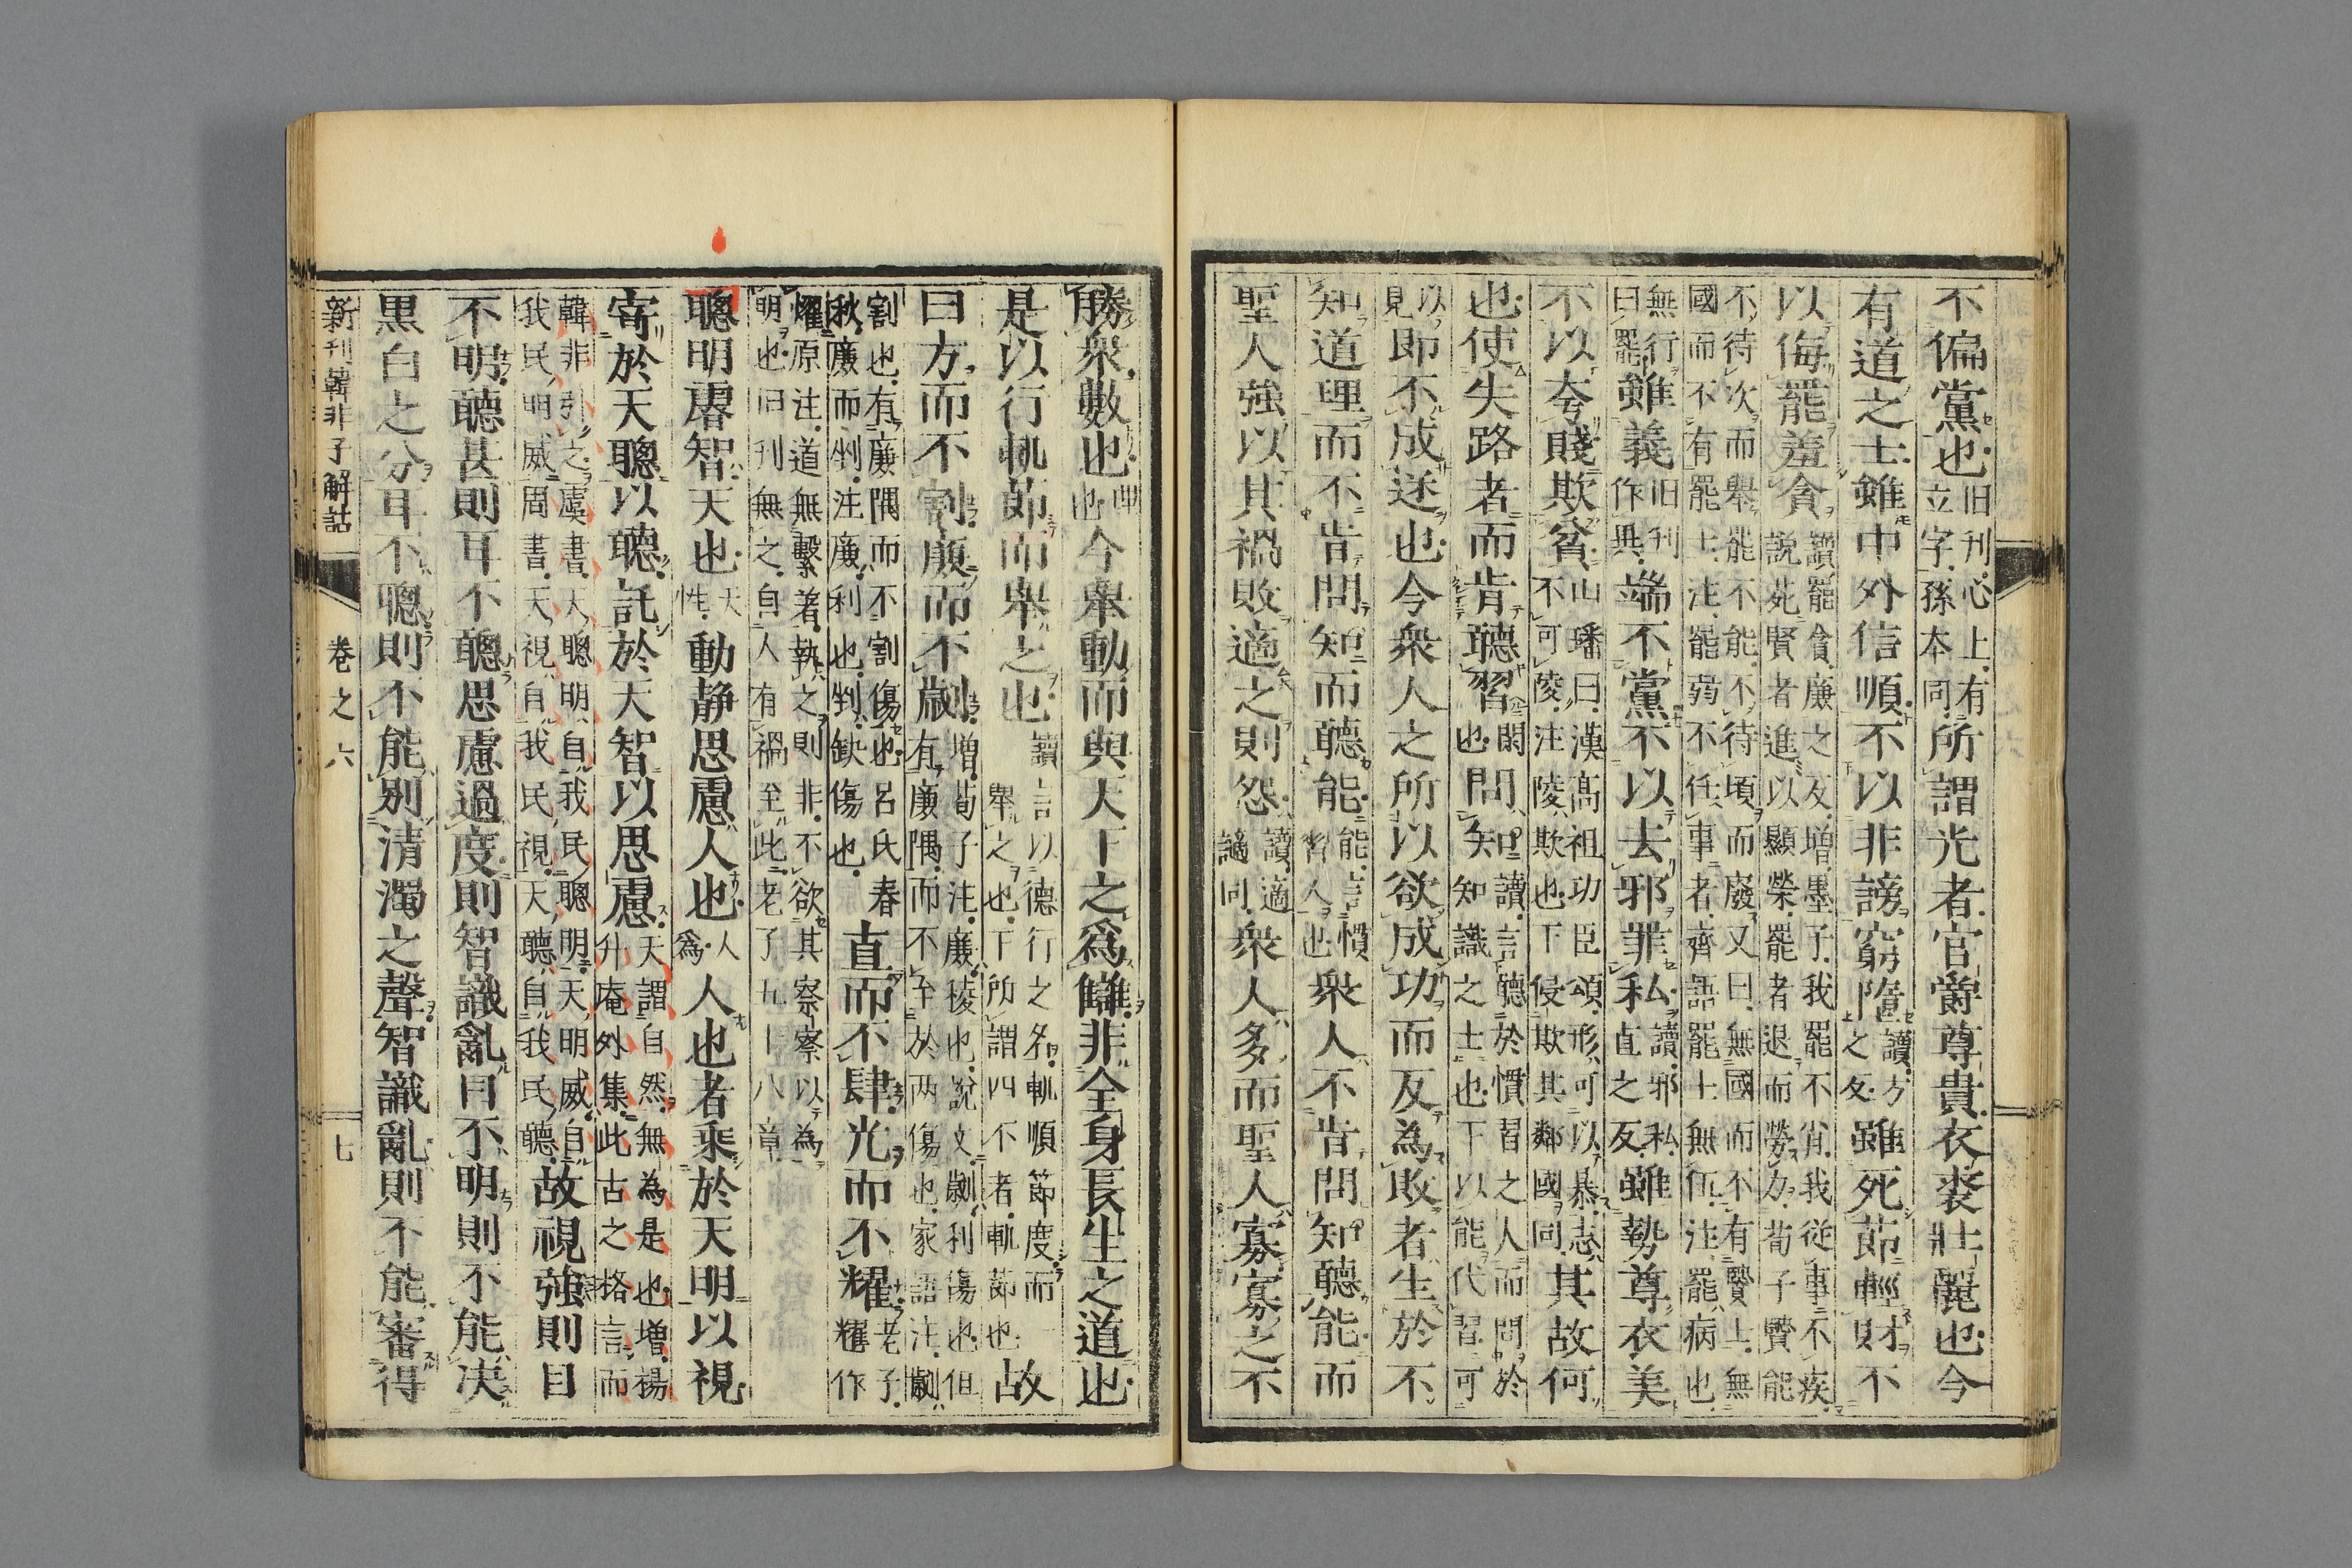 不偏黨也旧刊心上有立字孫本同所謂光者官爵尊貴衣裘壯麗也今
有道之士雖中外信順不以非謗窮墮讀方之反雖死節輕財不
以侮罷羞貪讀罷貪廉之反増墨子我罷不肖我従事不疾説苑賢者進以顯榮罷者退而勞力荀子賢能
不待次而舉罷不能不待頃而廢又曰無國而不有賢士無國而不有罷士注罷弱不任事者齊語罷士無伍注罷病也
無行曰罷雖義旧刊作異端不黨不以去邪罪私讀邪私直之反雖勢尊衣美
不以夸賤欺貧山璠曰漢髙祖功臣頌形可以暴志不可陵注陵欺也下侵欺其鄰國同其故何
也使失路者而肯聽習閑也問知讀言聽於慣習之人而問於知識之士也下以能代習可
以見即不成迷也今衆人之所以欲成功而反為敗者生於不
知道理而不肯問知而聽能能言慣習人也衆人不肯問知聽能而
聖人強以其禍敗適之則怨讀適讁同衆人多而聖人寡寡之不
勝衆數也理也今舉動而與天下之爲讎非全身長生之道也
是以行軌節而舉之也讀言以德行之名軌順節度而舉之也下所謂四不者軌節也故
曰方而不割廉而不劌増荀子注廉稜也説文劌利傷也但有廉隅而不至於两傷也家語注劌
割也有廉隅而不割傷也呂氏春秋廉而不剉注廉利也剉缺傷也直而不肆光而不耀老子耀作
燿原注道無繫著執之則非不欲其察察以為明也旧刊無之自人有禍至此老子五十八章
聰明睿智天也天性動静思慮人也人爲人也者乘於天明以視
寄於天聰以聽託於天智以思慮天謂自然無為是也増楊升庵外集此古之格言而
韓非引之虞書天聰明自我民聰明天明威自我民明威周書天視自我民視天聽自我民聽故視強則目
不明聽甚則耳不聰思慮過度則智識亂目不明則不能决
黒白之分耳不聰則不能别清濁之聲智識亂則不能審得
新刊韓非子解詁 卷之六 七